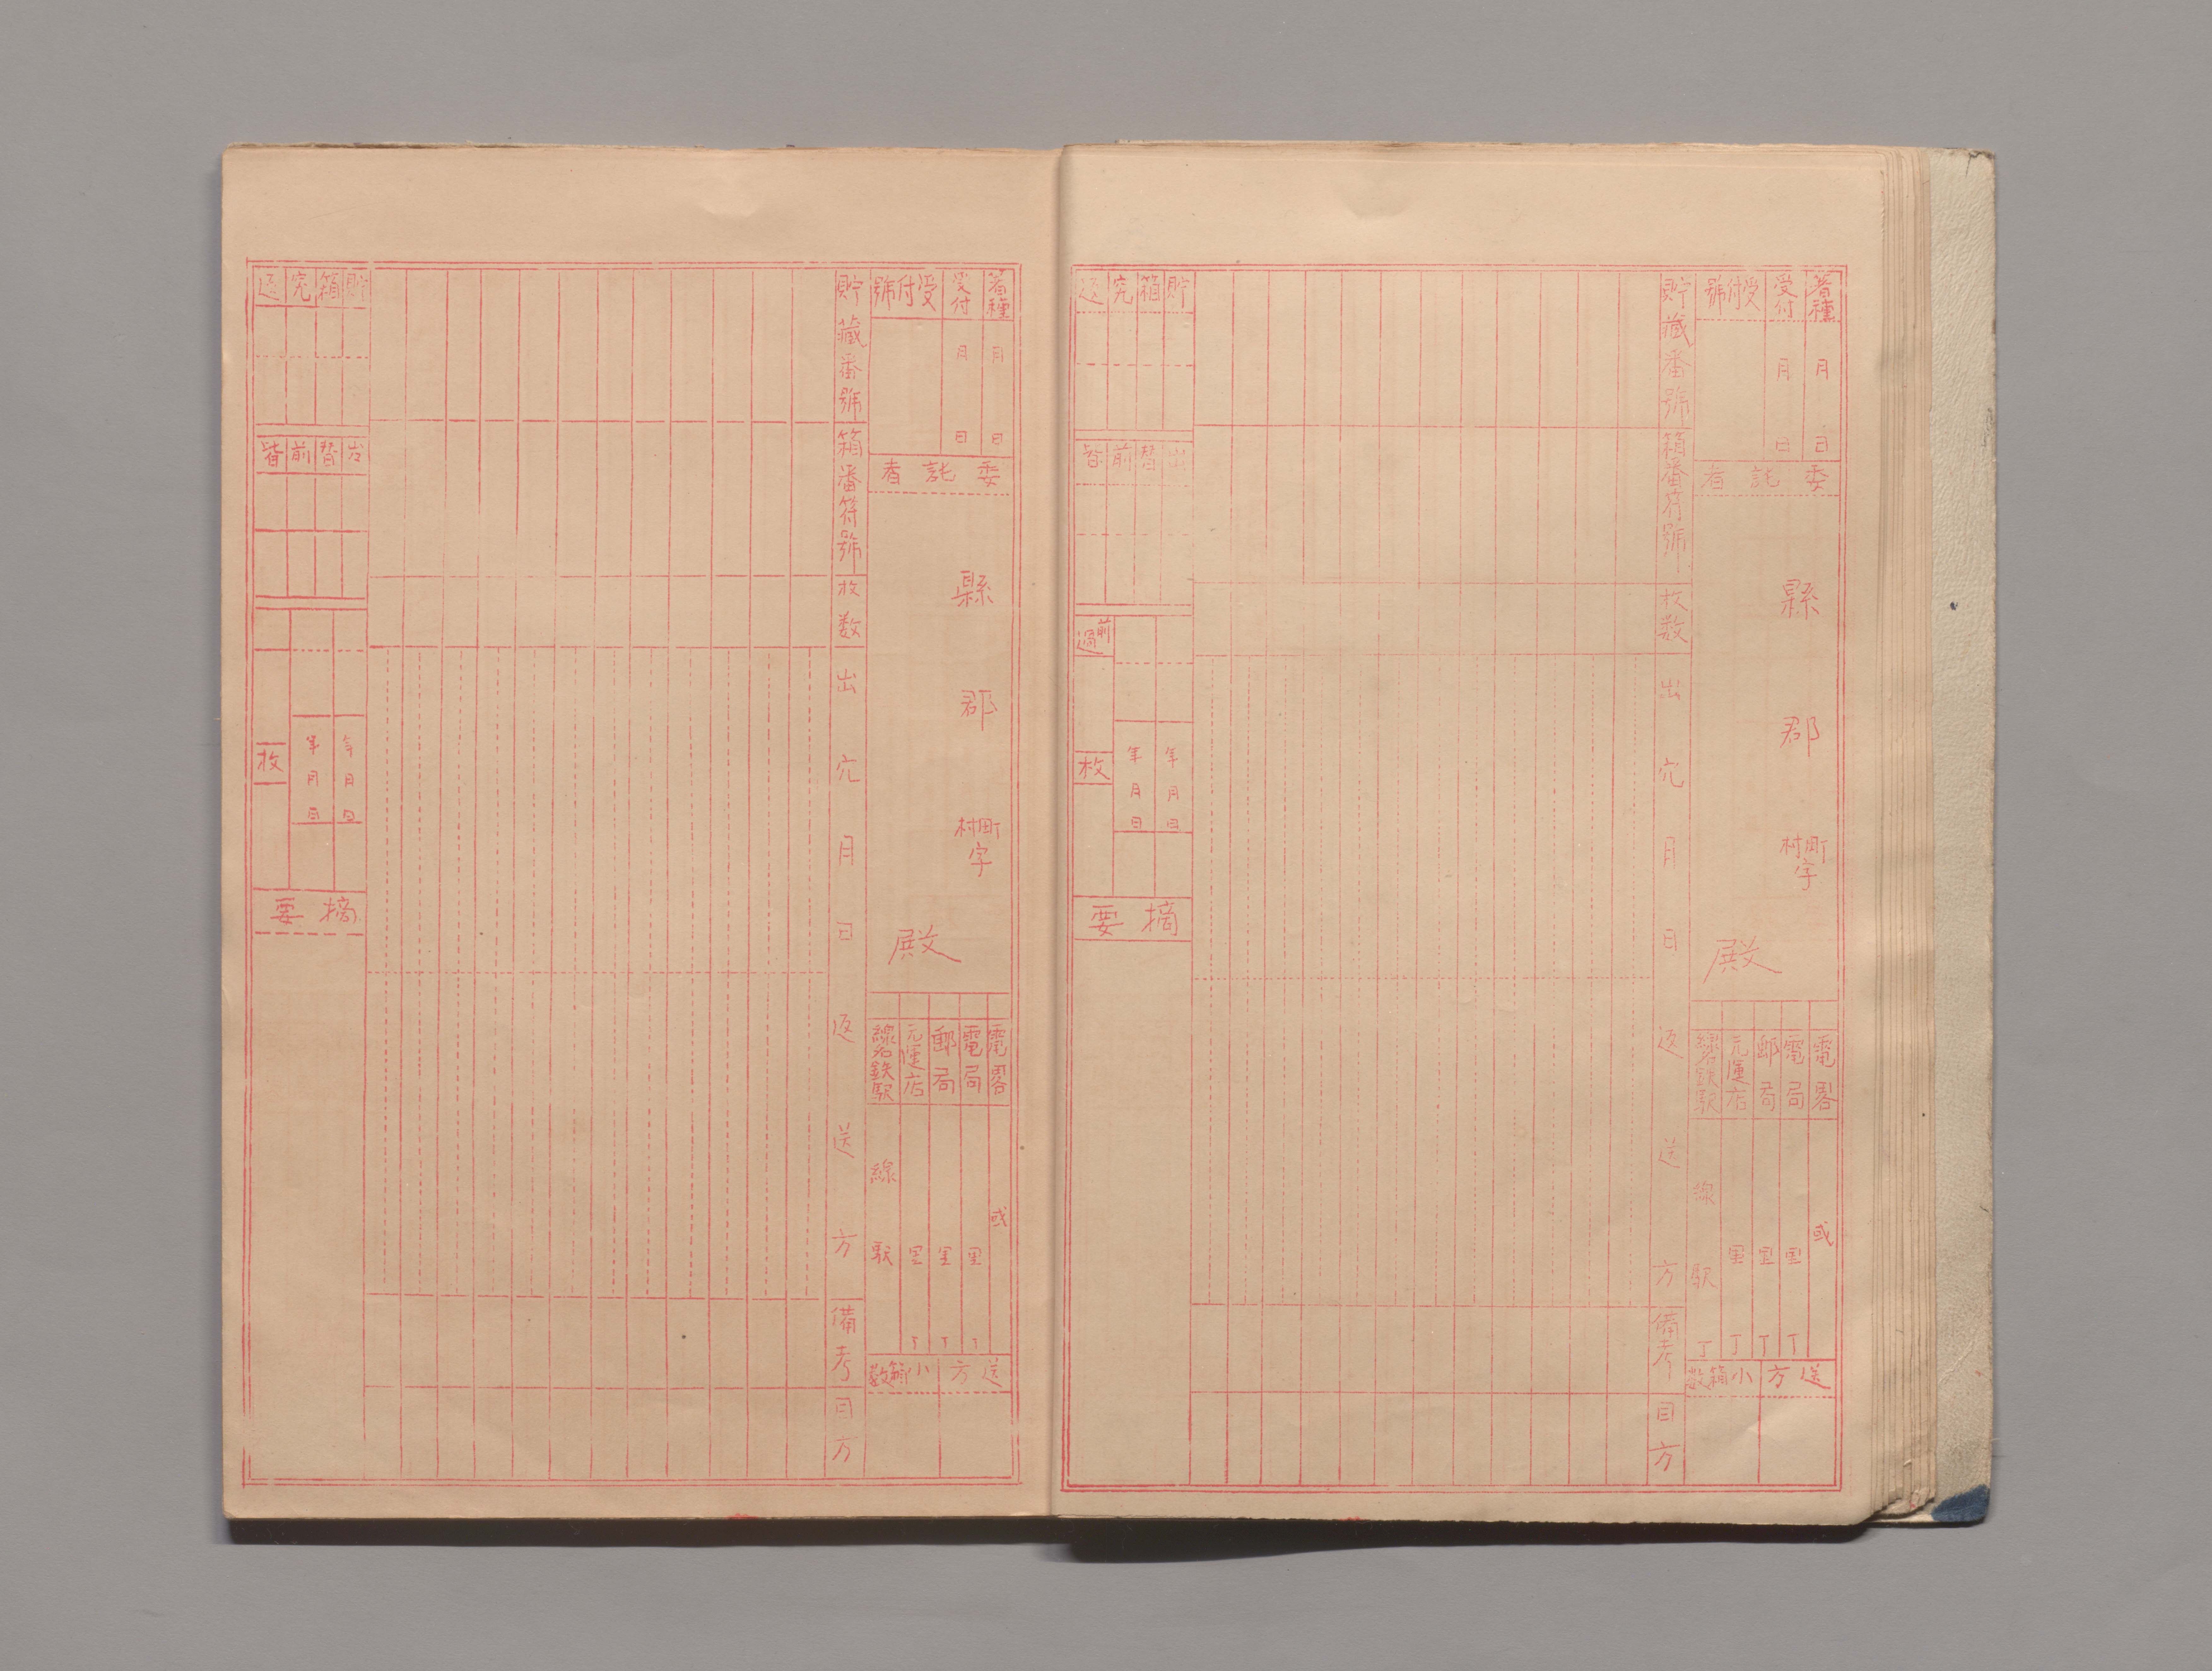 着種
月 日
受付
月 日
受付號
委託者
縣 郡 町村字
殿
電畧
或
電局
里 丁
郵局
里 丁
元運店
里 丁
線名鉄駅
線 駅 丁
送方
小箱数
貯藏番號
箱番符號
枚数
出穴月日返送方
備考
目方
貯箱穴返
出替前皆
前過
年月日
年月日
枚
摘要
着種
月 日
受付
月 日
受付號
委託者
縣 郡 町村字
殿
電畧
或
電局
里 丁
郵局
里 丁
元運店
里 丁
線名鉄駅
線 駅
送方
小箱数
貯藏番號
箱番符號
枚数
出穴月日返送方
備考
目方
貯箱穴返
出替前皆
年月日
年月日
枚
摘要